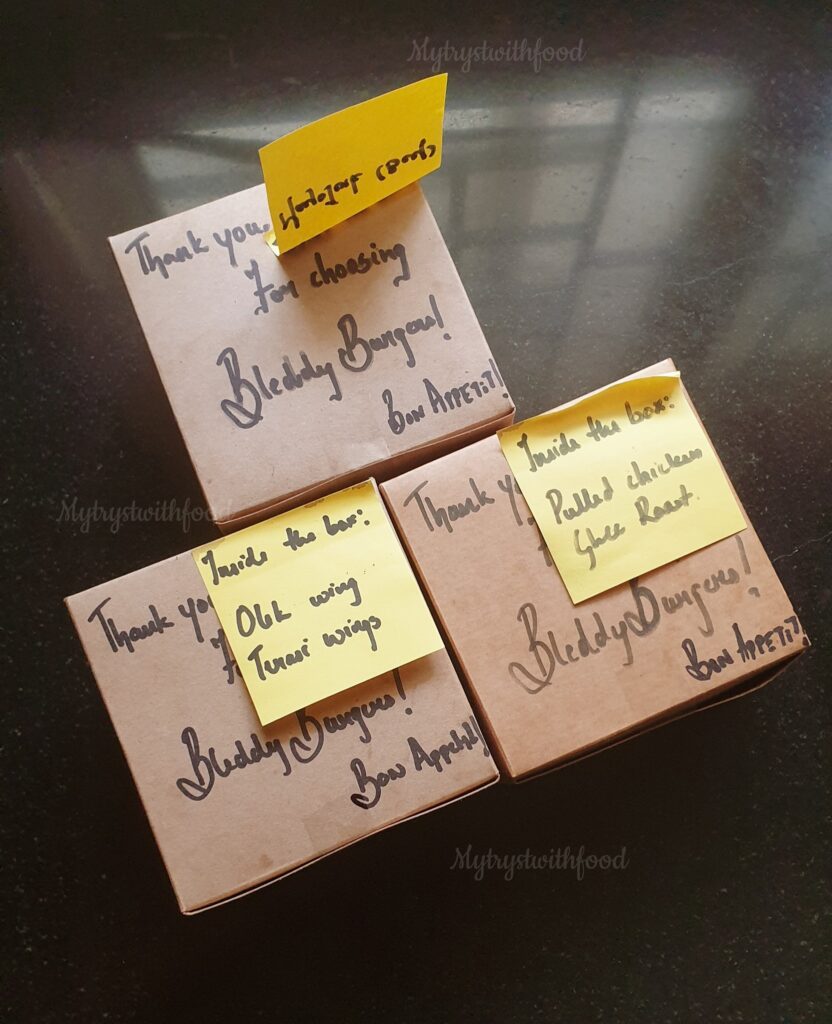 Mytrystwithfood
Thank you
For choosing
Bleddy Burgers!
Bon Appetit!
Inside the box:
Pulled chicken
Ghee Roast.
Thank
Bleddy Burgers!
Bon Appetit!
Mytrystwithfood
Inside the box:
wing
wings
Thank you
Bleddy Burgers!
Bon Appetit!
Mytrystwithfood